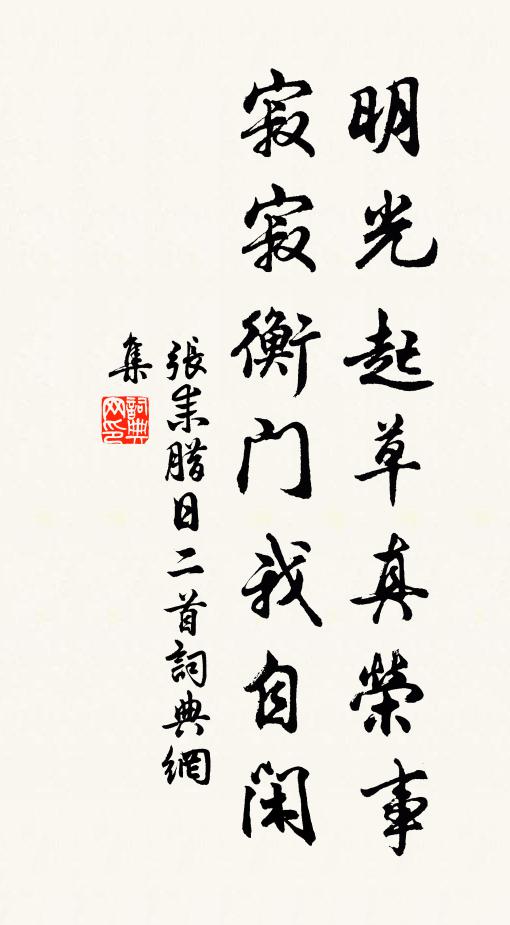 明光起草真榮事
寂寂衡門我自閑
張耒腊日二首詞典網
集
詞典
网印